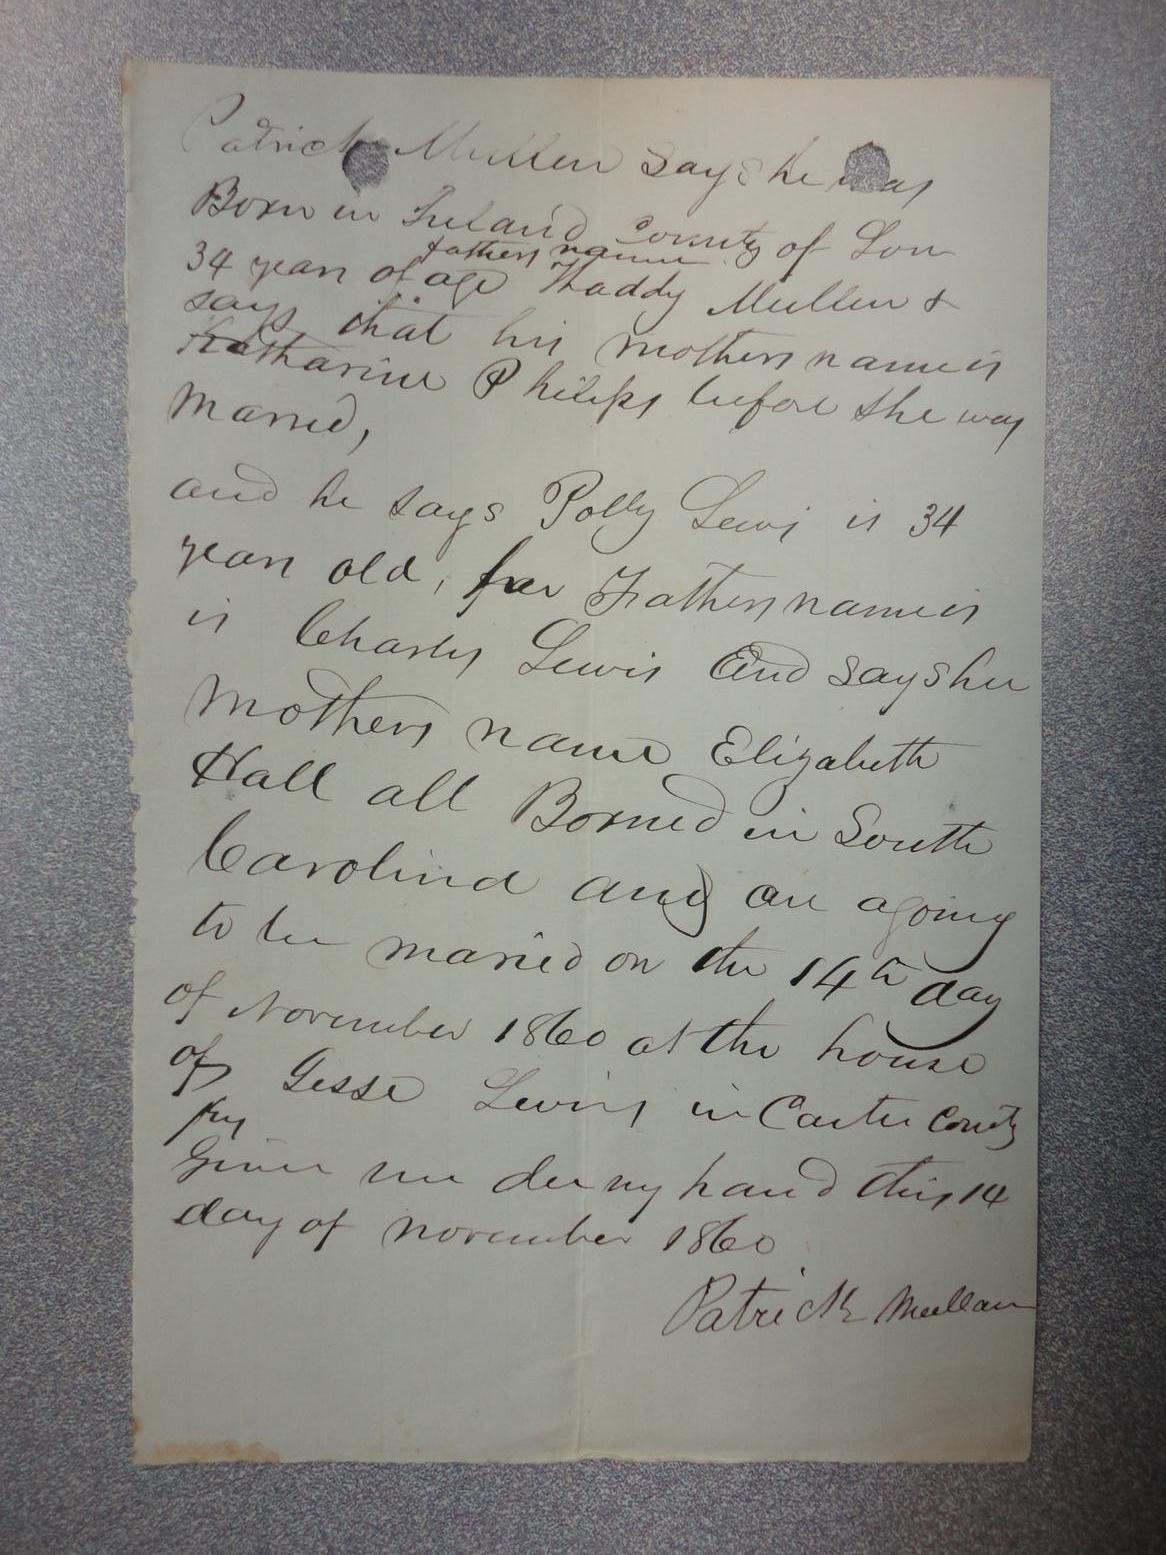 Patrick Mullen says he was
Born in Ireland County of Lou
fathers name
34 years of age Thaddy Mullen &
says that his mothers name is
Katharine Philips before she was
Maried,
and he says Polly Lewis is 34
years old, her Fathers name is
is Charly Lewis And says her
Mothers name Elizabeth
Hall all Borned in South
Carolina and are agoing
to be maried on the 14th day
of November 1860 at the house
of Gesse Lewis in Carter County
Ky
Given un der my hand this 14
day of november 1860
Patrick Mullan